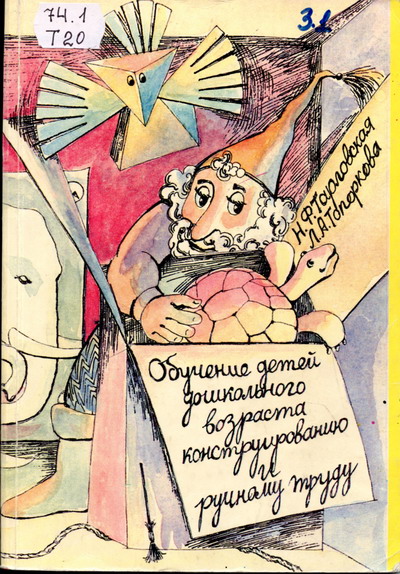 74.1
Т20
3.1
Н.Ф.Тарловская
Л.А.Топоркова
Обучение детей
дошкольного
возраста
конструированию
и
ручному труду